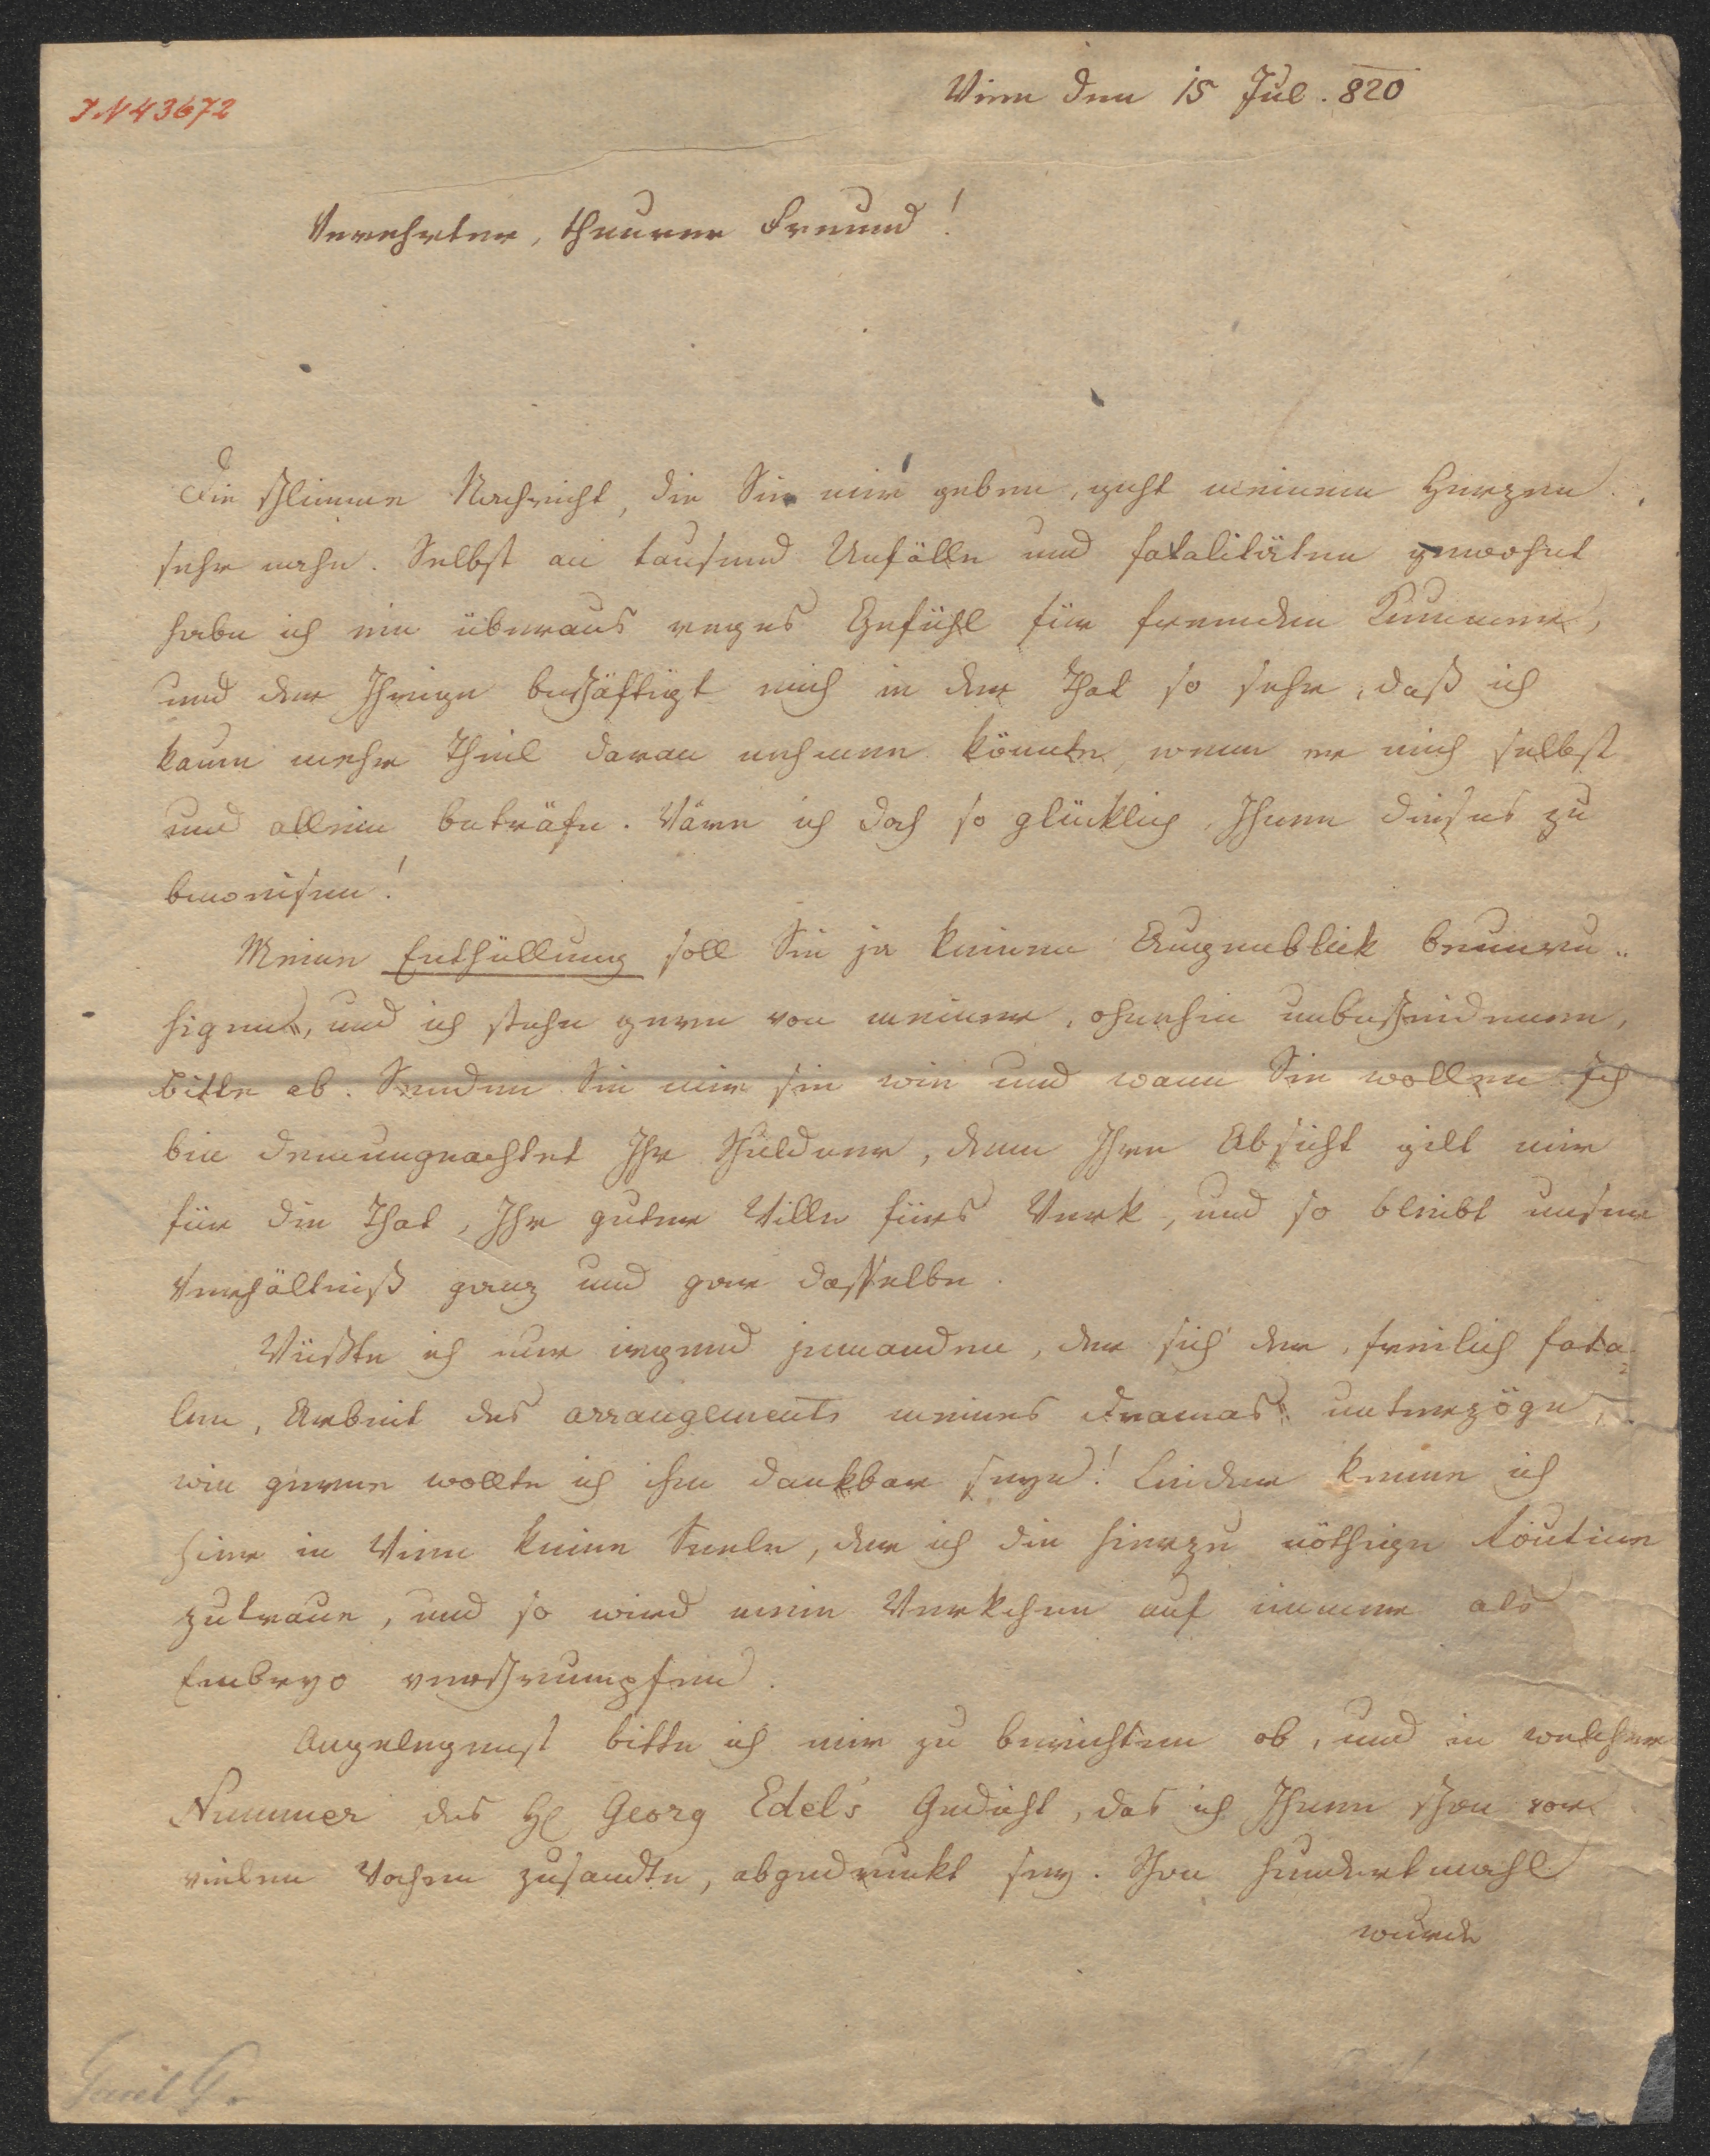 Wien den 15 Jul. 820
IN 43672
Verehrter, theurer Freund!
Die schlimme Nachricht, die Sie mir geben, geht meinem Herzen
sehr nahe. Selbst an tausend Unfälle und fatalitäten gewohnt
habe ich ein überaus reges Gefühl für fremden Kummer,
und der Ihrige beschäftigt mich in der That so sehr, daß ich
kaum mehr Theil daran nehmen könnte, wenn er mich selbst
und allein beträfe. Wäre ich doch so glücklich, Ihnen dieses zu
beweisen!
Meine Enthüllung soll Sie ja keinen Augenblick beunru-
higen, und ich stehe gern von meiner, ohnehin unbescheidenen,
Bitte ab. Senden Sie mir sie wie und wann Sie wollen. Ich
bin demungeachtet Ihr Schuldner, denn Ihre Absicht gilt mir
für die That, Ihr guter Wille fürs Werk, und so bleibt unser
Verhältniß ganz und gar dasselbe.
Wüßte ich nur irgend jemanden, der sich der, freilich fata-
len, Arbeit des arrangements meines Dramas unterzöge,
wie gerne wollte ich ihm dankbar seyn! Leider kenne ich
hier in Wien keine Seele, der ich die hierzu nöthige Routine
zutraue, und so wird mein Werkchen auf immer als
Embryo verschrumpfen.
Angelegenst bitte ich mir zu berichten ob, und in welcher
Nummer des H Georg Edel's Gedicht, das ich Ihnen schon vor
vielen Wochen zusandte, abgedruckt sey. Schon hundertmahl
wurde